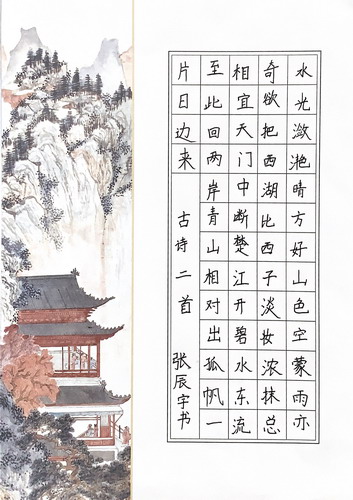 水光潋滟晴方好山色空蒙雨亦
奇欲把西湖比西子淡妆浓抹总
相宜天门中断楚江开碧水东流
至此回两岸青山相对出孤帆一
片日边来
古诗二首
张辰宇书